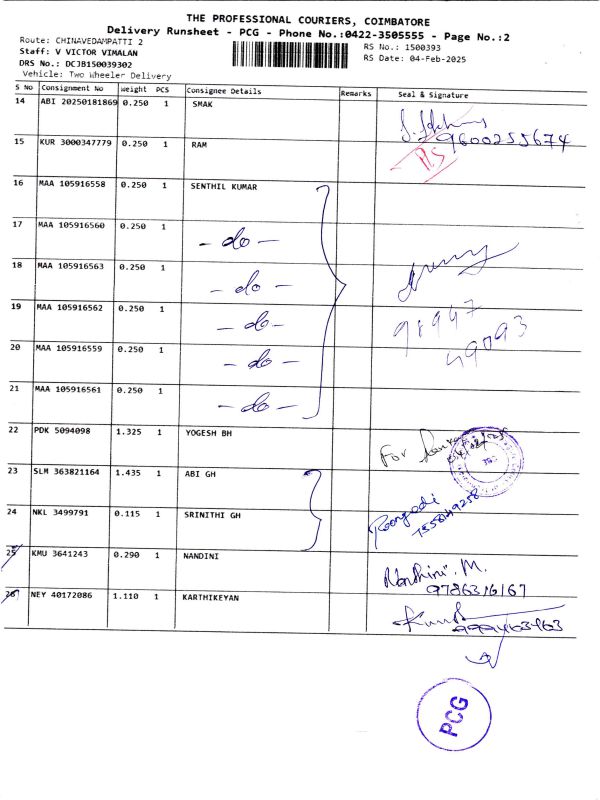 THE PROFESSIONAL COURIERS, COIMBATORE
Delivery Runsheet - PCG - Phone No.:0422-3505555 - Page No.:2
Route: CHINAVEDAMPATTI 2
RS No.: 1500393
Staff: V VICTOR VIMALAN
RS Date: 04-Feb-2025
DRS No.: DCJB150039302
Vehicle: Two Wheeler Delivery
S No Consignment No Weight PCS Consignee Details Remarks Seal & Signature
14 ABI 20250181869 0.250 1 SMAK
9600255674
15 KUR 3000347779 0.250 1 RAM
RS
16 MAA 105916558 0.250 1 SENTHIL KUMAR
17 MAA 105916560 0.250 1 - do -
18 MAA 105916563 0.250 1 - do -
19 MAA 105916562 0.250 1 - do -
98947
49093
20 MAA 105916559 0.250 1 - do -
21 MAA 105916561 0.250 1 - do -
22 PDK 5094098 1.325 1 YOGESH BH
For
23 SLM 363821164 1.435 1 ABI GH
24 NKL 3499791 0.115 1 SRINITHI GH
25 KMU 3641243 0.290 1 NANDINI
Nandhini. M.
9786316167
26 NEY 40172086 1.110 1 KARTHIKEYAN
9994463463
PCG